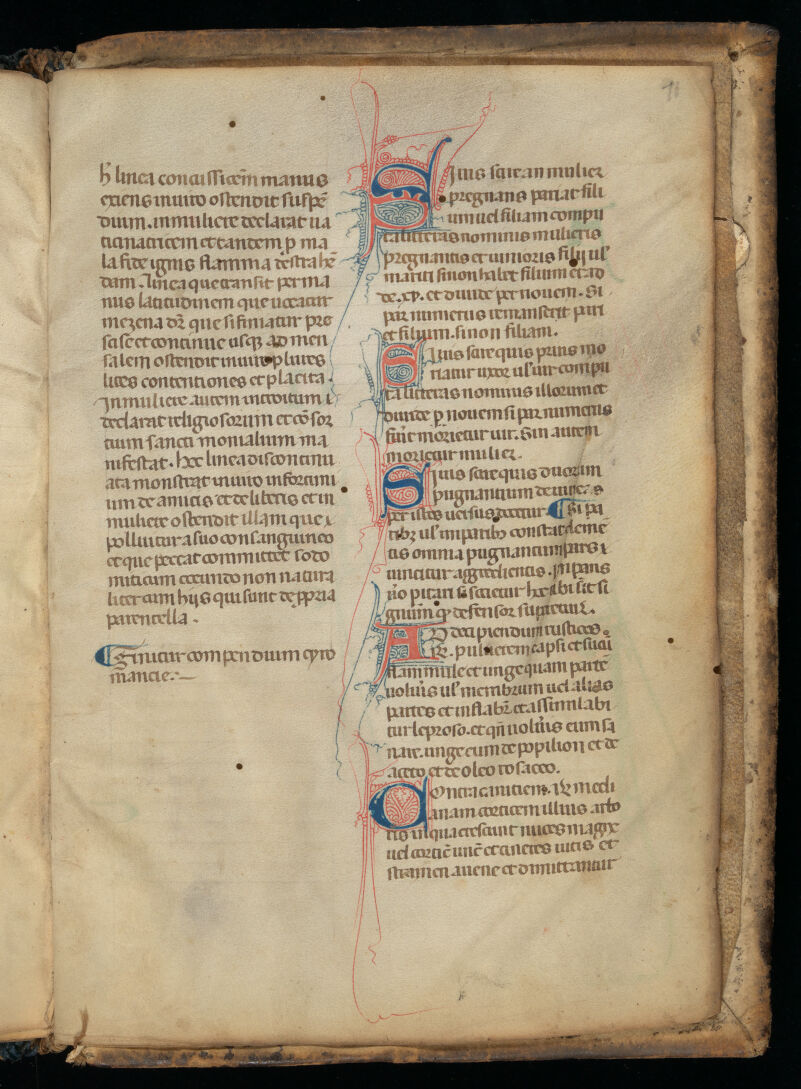 ħ linea concaissicem manus
exiens inuito ostendit suspē
dium. in muliere declarat ua
ticinatricem et tandem ꝑ ma
la fide ignis flamma destrahē
dam. linea que transit per ma
nus latitudinem que uocatur
mezena dr̄ que si finiatur pre
scise et continue usqꝫ ad men
salem ostendit in uiro plures
lites contentiones et placita.
In muliere autem introitum ī
declarat religiosorum et cōsor
tium sancti monialium ma
nifestat. hec linea discontinu
ata monstrat in uiro infortuni
um de amicis et de liberis et in
muliere ostendit illam que
polluitur a suo consanguineo
et que peccatum committet sodo
miticum coeundo non natura
liter cum hijs qui sunt de ꝓpria
parentella.
¶ Finitur compendium cyro
mancie.
76
Si uis scire an mulier
pregnans pariat fili
um uel filiam compu
ta litteras nominis mulieris
pregnantis et iunioris filij ul'
mariti si non habet filium et ad
de .xv. et diuide per nouem. Si
par numerus remanserit pari
et filium. si non filiam.
Si uis scire quis prius mo
riatur uxor ul' uir compu
ta litteras nominis illorum et
diuide ꝑ nouem si par numerus
fūit morietur uir. Sin autem
morietur mulier.
Si uis scire quis duorum
pugnantium deuincens
per istos uersus docetur. ¶ Si pa
ribꝫ ul' imparibꝫ constat
omnia pugnantum pars
uincitur aggredientis. In paris
si societur hec ibi sit si
gnum qꝫ defensor supretur.
Ad decipiendum rusticos.
R. puluerem capsi et succi
flammule et unge quam partē
uolūis ul' membrum uel alias
partes et inflabr̄ et assimilabi
tur leproso. et qn̄ uolūis eum sa
nare. unge eum de popilion et de
aceto et de oleo rosaceo.
Contra canitiem. R. medi
anam corticem illius arbo
ris in qua crescunt nuces magne
uel corticē et cineres uitis et
stramen auene et dimittantur